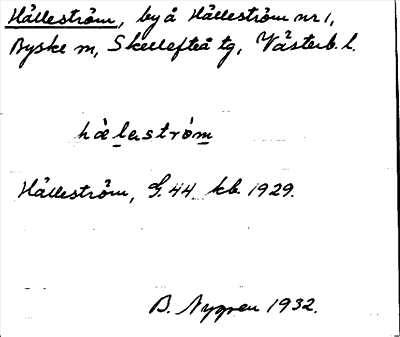 Hålleström, by å Hålleström nr 1,
Byske sn, Skellefteå tg, Västerb. l.
hà̀leström
Hålleström, G. 44 kb. 1929.
B. Nygren 1932.